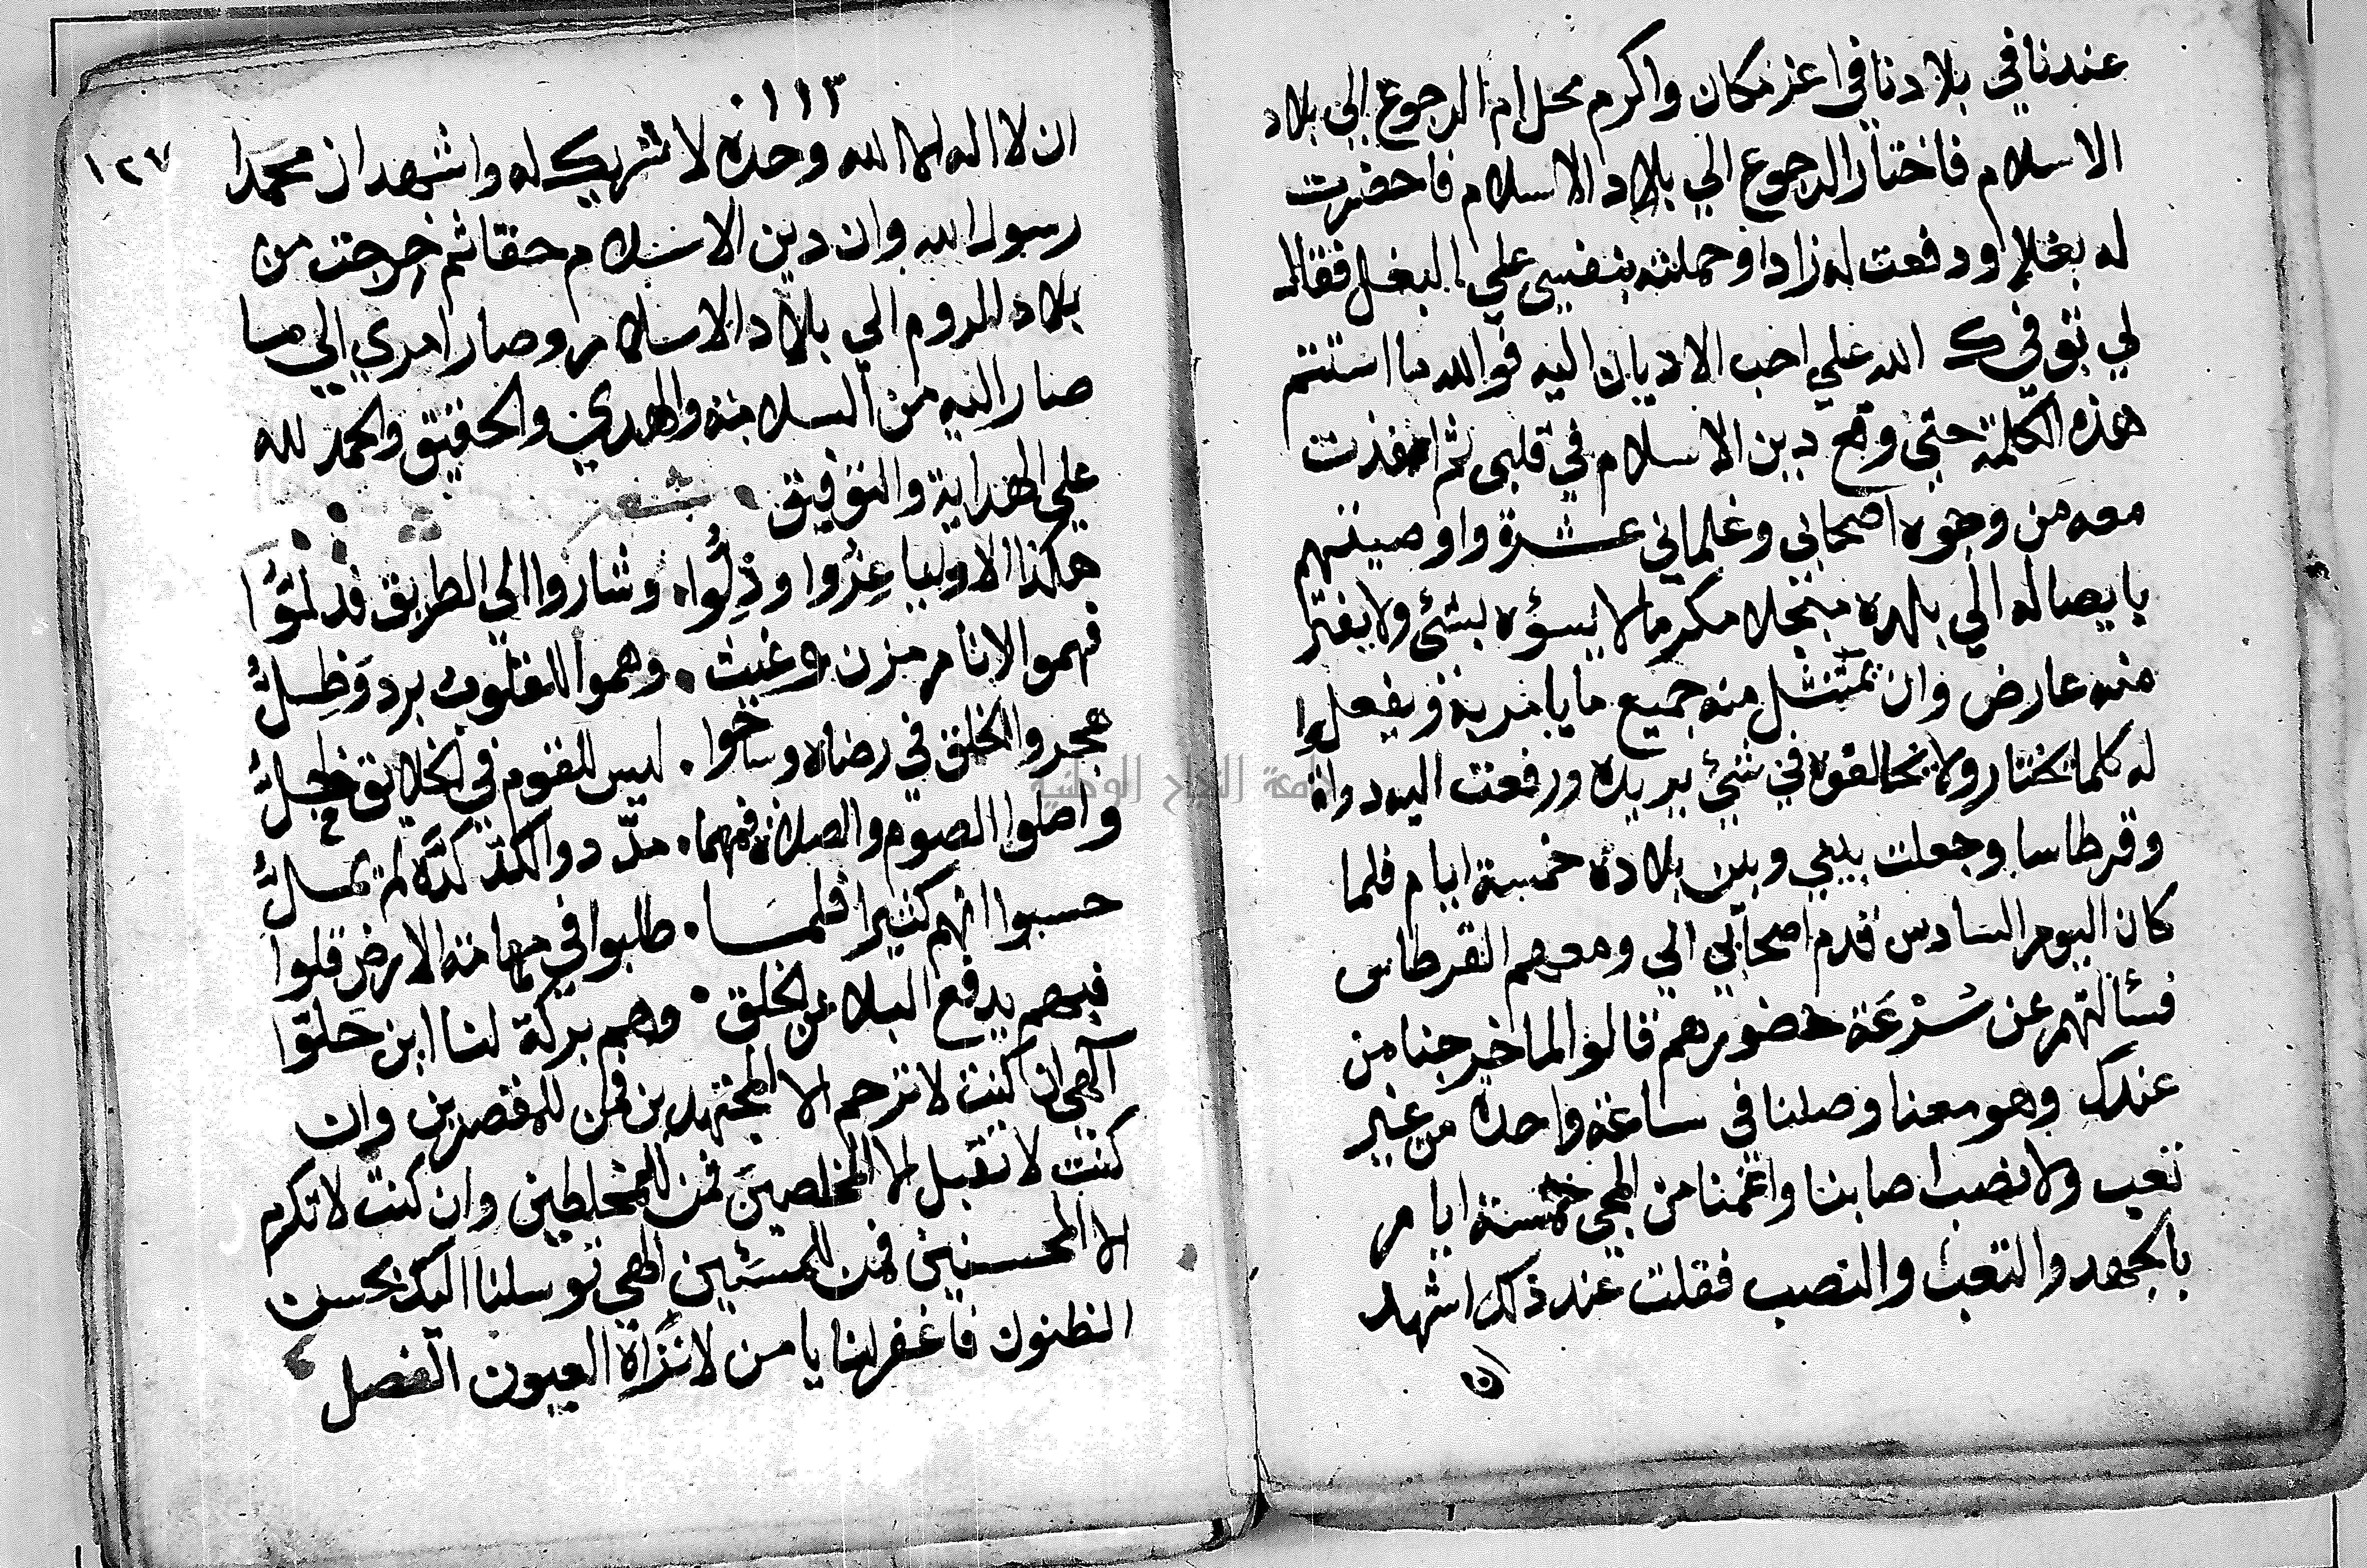 عندنا في بلادنا في اعز مكان واكرم محل ام الرجوع الي بلاد
الاسلام فاختار الرجوع الي بلاد الاسلام فاحضرت
له بغلا ودفعت له زادا وحملته بنفسي علي البغل فقال
لي توفيك الله علي احب الاديان اليه فوالله ما استتم
هذه الكلمة حتي وقع دين الاسلام في قلبي ثم انفذت
معه من وجوه اصحابي وغلماني عشرة واوصيتهم
بايصاله الي بلده مبجلا مكرما لا يسؤه بشئ ولا يفتر
منه عارض وان نمتثل منه جميع ما يامر به ويفعلوا
له كلما يختار ولا يخالفوه في شئ يريده ورفعت اليه دواة
وقرطاسا وجعلت بيني وبين بلاده خمسة ايام فلما
كان اليوم السادس قدم اصحابي الي ومعهم القرطاس
فسألتهم عن سرعة حضورهم قالوا لما خرجنا من
عندك وهو معنا وصلنا في ساعة واحدة من غير
تعب ولا نصب اصابنا واقمنا من المجي خمسة ايام
بالجهد والتعب والنصب فقلت عند ذلك اشهد
ان
١١٣
١٢٧
ان لا اله الا الله وحده لا شريك له واشهد ان محمدا
رسول الله وان دين الاسلام حقا ثم خرجت من
بلاد الروم الي بلاد الاسلام وصار امري الي ما
صار اليه من السلامة والهدي والحقيق والحمد لله
علي الهداية والتوفيق . شعر
هكذا الاوليا عزوا وذلوا . وشاروا الي الطريق فدلوا
فهموا الانام مزن وغيث . وهموا للقلوب برد وظل
هجروا الخلق في رضاه وساخوا . ليس للقوم في الخلايق خل
واصلوا الصوم والصلاة فمهما . مدد والكد كده لم يملّ
حسبوا انهم كثيرا فلما . طلبوا في مهامة الارض قلوا
فبهم يدفع البلا عن الخلق . وهم بركة لنا اين حلوا
آلهي ان كنت لا ترحم الا المجتهدين فمن للمقصرين وان
كنت لا تقبل الا المخلصين فمن للمخلطين وان كنت لا تكرم
الا المحسنين فمن للمسئين الهي توسلنا اليك بحسن
الظنون فاغفر لنا يا من لا تراه العيون الفصل